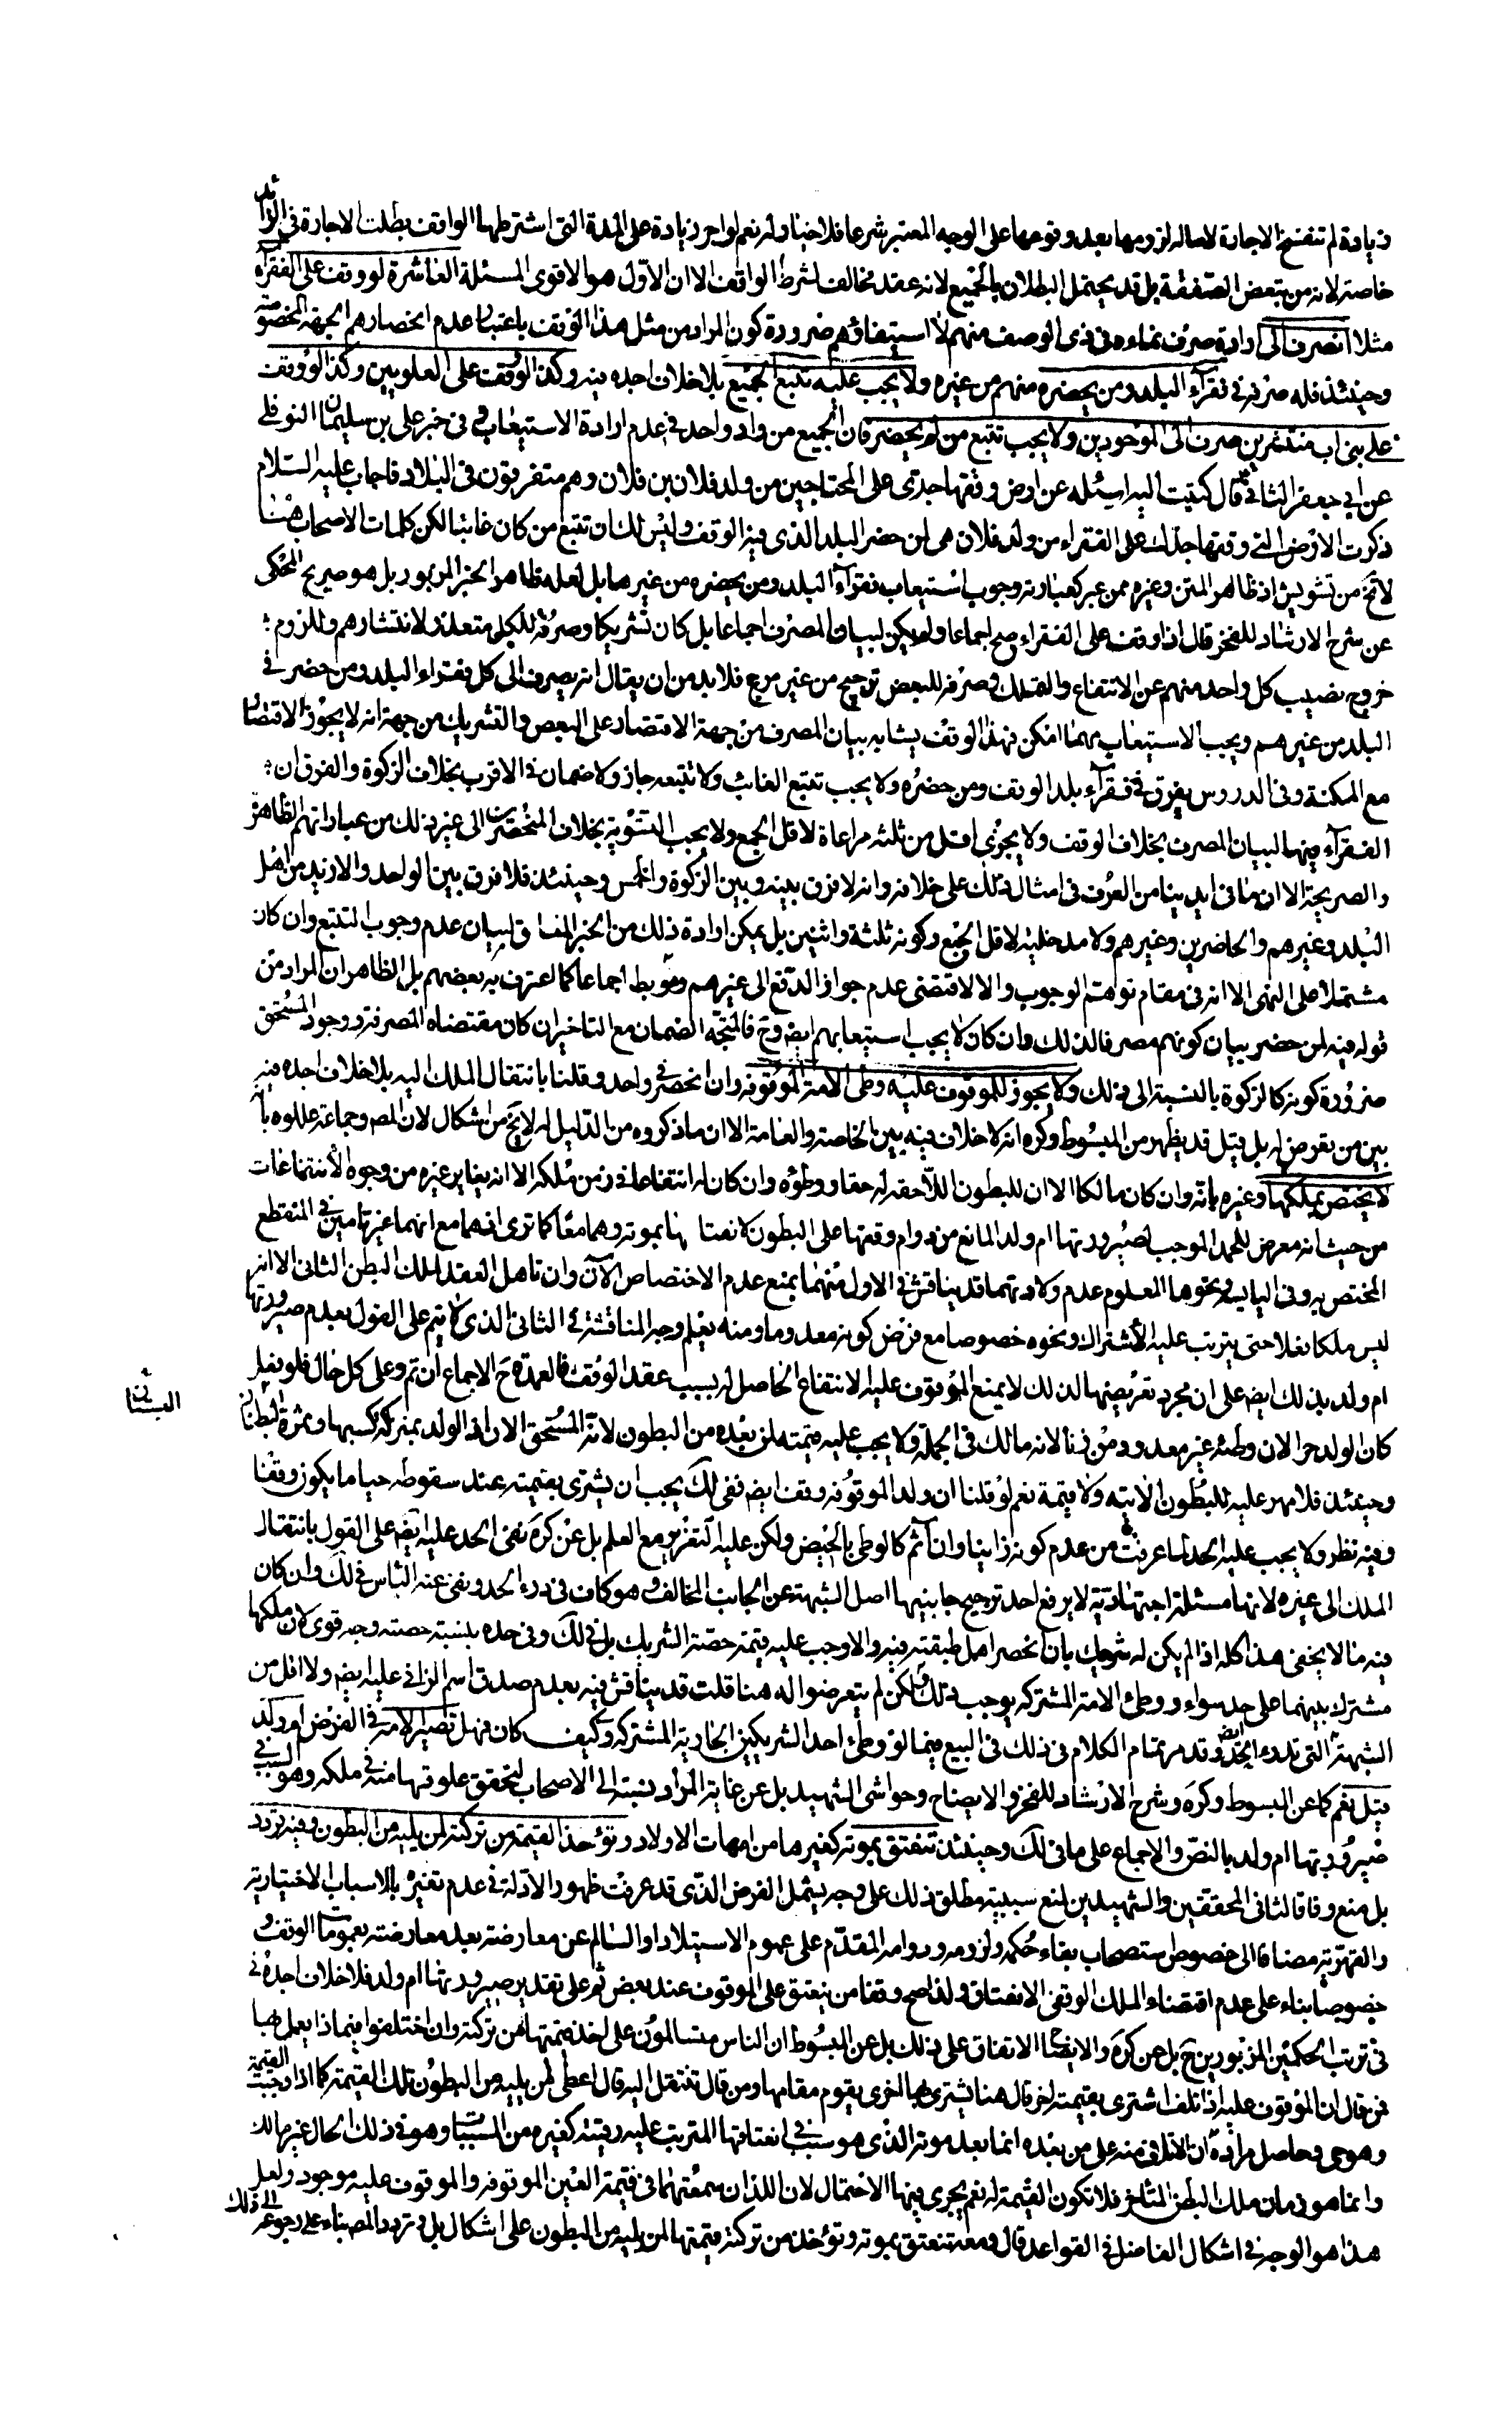 زيادة لم تنفسخ الاجارة لاصالة لزومها بعد وقوعها على الوجه المعتبر شرعا فلا خيار له نعم لو اجر زيادة على المدة التى اشترطها الواقف بطلت الاجارة فى الزائد
خاصة لانه من تبعض الصفقة بل قد يحتمل البطلان بالجميع لانه عقد مخالف لشرط الواقف الا ان الاول هو الاقوى المسئلة العاشرة لو وقف على الفقراء
مثلا انصرف الى ارادة صرف نماءه فى ذى الوصف منهم لا استيفاؤهم ضرورة كون المراد من مثل هذا الوقف باعتبار عدم انحصارهم الجهة المخصوصة
وحينئذ فله صرفه فى فقراء البلد ومن يحضره منهم من غيره ولا يجب عليه تتبع الجميع بلا خلاف اجده فيه وكذا الوقف على العلويين وكذا لو وقف
على بنى اب منتشرين صرف الى الموجودين ولا يجب تتبع من لم يحضر فان الجميع من واد واحد فى عدم ارادة الاستيعاب وفى خبر على بن سليمان النوفلى
عن ابى جعفر الثانى ع قال كتبت اليه اسئله عن ارض وقفها جدى على المحتاجين من ولد فلان بن فلان وهم متفرقون فى البلاد فاجاب عليه السلام
ذكرت الارض التى وقفها جدك على الفقراء من ولد فلان هى لمن حضر البلد الذى فيه الوقف وليس لك ان تتبع من كان غائبا لكن كلمات الاصحاب هنا
لا تخ من تشويش اذ ظاهر المتن وغيره ممن عبر كعبارته وجوب استيعاب فقراء البلد ومن يحضره من غيرها بل لعله ظاهر الخبر المزبور بل هو صريح المحكى
عن شرح الارشاد للفخر قال اذا وقف على الفقراء صح اجماعا ولم يكن لبيان المصرف اجماعا بل كان تشريكا وصرفه للكل متعذر لانتشارهم وللزوم
خروج نصيب كل واحد منهم عن الانتفاع والتملك وصرفه للبعض ترجيح من غير مرجح فلا بد من ان يقال انه يصرف الى كل فقراء البلد ومن حضر فى
البلد من غيرهم ويجب الاستيعاب مهما امكن فهذا الوقف يشابه بيان المصرف من جهة الاقتصار على البعض والتشريك من جهة انه لا يجوز الاقتصار
مع المكنة وفى الدروس يفرق فى فقراء بلد الوقف ومن حضره ولا يجب تتبع الغائب ولا تتبعه جاز ولا ضمان فى الاقرب بخلاف الزكوة والفرق ان
الفقراء فيها لبيان المصرف بخلاف الوقف ولا يجزى اقل من ثلثة مراعاة لاقل الجمع ولا يجب التسوية بخلاف المنحصرين الى غير ذلك من عباراتهم الظاهرة
والصريحة الا ان ما فى ايدينا من العرف فى امثال ذلك على خلافه وانه لا فرق بينه وبين الزكوة والخمس وحينئذ فلا فرق بين الواحد والازيد من اهل
البلد وغيرهم والحاضرين وغيرهم ولا مدخلية لاقل الجمع وكونه ثلثة واثنين بل يمكن ارادة ذلك من الخبر المساق لبيان عدم وجوب التتبع وان كان
مشتملا على النهى الا انه فى مقام توهم الوجوب والا لاقتضى عدم جواز الدفع الى غيرهم وهو بط اجماعا كما اعترف به بعضهم بل الظاهر ان المراد من
قوله فيه لمن حضر بيان كونهم مصرفا لذلك وان كان لا يجب استيعابهم ايض وح فالمتجه الضمان مع التاخير ان كان مقتضاه الصرف ووجود المستحق
ضرورة كونه كالزكوة بالنسبة الى ذلك ولا يجوز للموقوف عليه وطى الامة الموقوفة وان انحصر فى واحد وقلنا بانتقال الملك اليه بلا خلاف اجده فيه
بين من تعرض له بل قيل قد يظهر من المبسوط وكره انه لا خلاف فيه بين الخاصة والعامة الا ان ما ذكروه من الدليل له لا يخ من اشكال لان المص وجماعة عللوه بانه
لا يختص بملكها وغيره بانه وان كان مالكا الا ان للبطون اللاحقة له حقا ووطؤه وان كان له انتفاعا فى زمن ملكه الا انه يغاير غيره من وجوه الانتفاعات
من حيث انه معرض للحمل الموجب لصيرورتها ام ولد المانع من دوام وقفها على البطون لانعتاقها بموته وهما معا كما ترى اذ هما مع انهما غير تامين فى المنقطع
المختص به وفى اليائسة ونحوها المعلوم عدم ولادتهما قد يناقش فى الاول منهما بمنع عدم الاختصاص الآن وان تاهل العقد لملك البطن الثانى الا انه
ليس ملكا فعلا حتى يترتب عليه الاشتراك ونحوه خصوصا مع فرض كونه معدوما ومنه يعلم وجه المناقشة فى الثانى الذى لا يتم على القول بعدم صيرورتها
ام ولد بذلك ايض على ان مجرد تعريضها لذلك لا يمنع الموقوف عليه الانتفاع الحاصل له بسبب عقد الوقف فالعمدة ح الاجماع ان تم وعلى كل حال فلو فعل
كان الولد حرا لان وطئه غير معدود من زنا لانه مالك فى الجملة ولا يجب عليه قيمته لمن بعده من البطون لانه المستحق الان اذ الولد بمنزلة كسبها وثمرة البستان
البستان
وحينئذ فلا مهر عليه للبطون الآتية ولا قيمة نعم لو قلنا ان ولد الموقوفة وقف ايض ففى لك يجب ان يشترى بقيمته عند سقوطه حيا ما يكون وقفا
وفيه نظر ولا يجب عليه الحد لما عرفت من عدم كونه زانيا وان آثم كالوطى بالحيض ولكن عليه التعزير مع العلم بل عن كره نفى الحد عليه ايض على القول بانتقال
الملك الى غيره لانها مسئلة اجتهادية لا يرفع احد ترجيح جانبيها اصل الشبهة عن الجانب المخالف وهو كاف فى درء الحد ونفى عنه الباس فى لك وان كان
فيه ما لا يخفى هذا كله اذا لم يكن له شريك بان انحصر اهل طبقته فيه والا وجب عليه قيمة حصة الشريك بل فى لك وفى حده بنسبة حصته وجه قوى لان ملكها
مشترك بينهما على حد سواء ووطئ الامة المشتركة يوجب ذلك ولكن لم يتعرضوا له هنا قلت قد يناقش فيه بعدم صدق اسم الزانى عليه ايض ولا اقل من
الشبهة التى تدرء الحد ايض وقد مر تمام الكلام فى ذلك فى البيع فيما لو وطئ احد الشريكين الجارية المشتركة وكيف كان فهل تصير الامة فى الفرض ام ولد
قيل نعم كما عن المبسوط وكره وشرح الارشاد للفخر والايضاح وحواشى الشهيد بل عن غاية المراد نسبته الى الاصحاب لتحقق علوقها منه فى ملكه وهو السبب فى
صيرورتها ام ولد بالنص والاجماع على ما فى لك وحينئذ تنعتق بموته كغيرها من امهات الاولاد وتؤخذ القيمة من تركته لمن يليه من البطون وفيه تردد
بل منع وفاقا لثانى المحققين والشهيدين لمنع سببية مطلق ذلك على وجه يشمل الفرض الذى قد عرفت ظهور الادلة فى عدم تغيره بالاسباب الاختيارية
والقهرية مضافا الى خصوص استصحاب بقاء حكمه ولزومه ودوامه المقدم على عموم الاستيلاد او السالم عن معارضته بعد معارضته بعمومات الوقف
خصوصا بناء على عدم اقتضاء الملك الوقفى الانعتاق ولذا صح وقفا من ينعتق على الموقوف عند بعض ثم على تقدير صيرورتها ام ولد فلا خلاف اجده فى
فى ترتب الحكمين المزبورين ح بل عن كره والايضاح الاتفاق على ذلك بل عن المبسوط ان الناس متسالمون على اخذ قيمتها من تركته وان اختلفوا فيما ذا يعمل بها
فمن قال ان الموقوف عليه اذا تلف اشترى بقيمته اخر قال هنا يشترى بها اخرى يقوم مقامها ومن قال تنتقل اليه قال اعطى لمن يليه من البطون تلك القيمة كما اذا وجبت القيمة
وهو حى وحاصل مراده ان الاتلاف منه على من بعده انما بعد موته الذى هو سبب فى انعتاقها المترتب عليه رقيته كغيره من المسببات وهو فى ذلك الحال غير مالك
وانما هو زمان ملك البطن المتاخر فلا تكون القيمة له نعم يجرى فيها الاحتمال لان اللذان سمعتهما فى قيمة العين الموقوفة والموقوف عليه موجود ولعل
هذا هو الوجه فى اشكال الفاضل فى القواعد قال ومعه تنعتق بموته وتؤخذ من تركته قيمتها لمن يليه من البطون على اشكال بل وتردد المص بناء على رجوعه الى ذلك